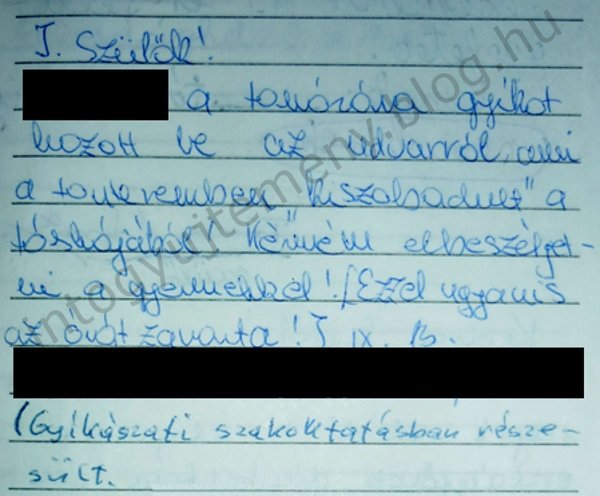 T. Szülők!
a tornaórára gyíkot
hozott be az udvarról, ami
a tornateremben "kiszabadult" a
táskájából. Kérném elbeszélget-
ni a gyermekkel! (Ezzel ugyanis
az órát zavarta!) IX. 13.
(Gyíkászati szakoktatásban része-
sült.
intogyujtemeny.blog.hu